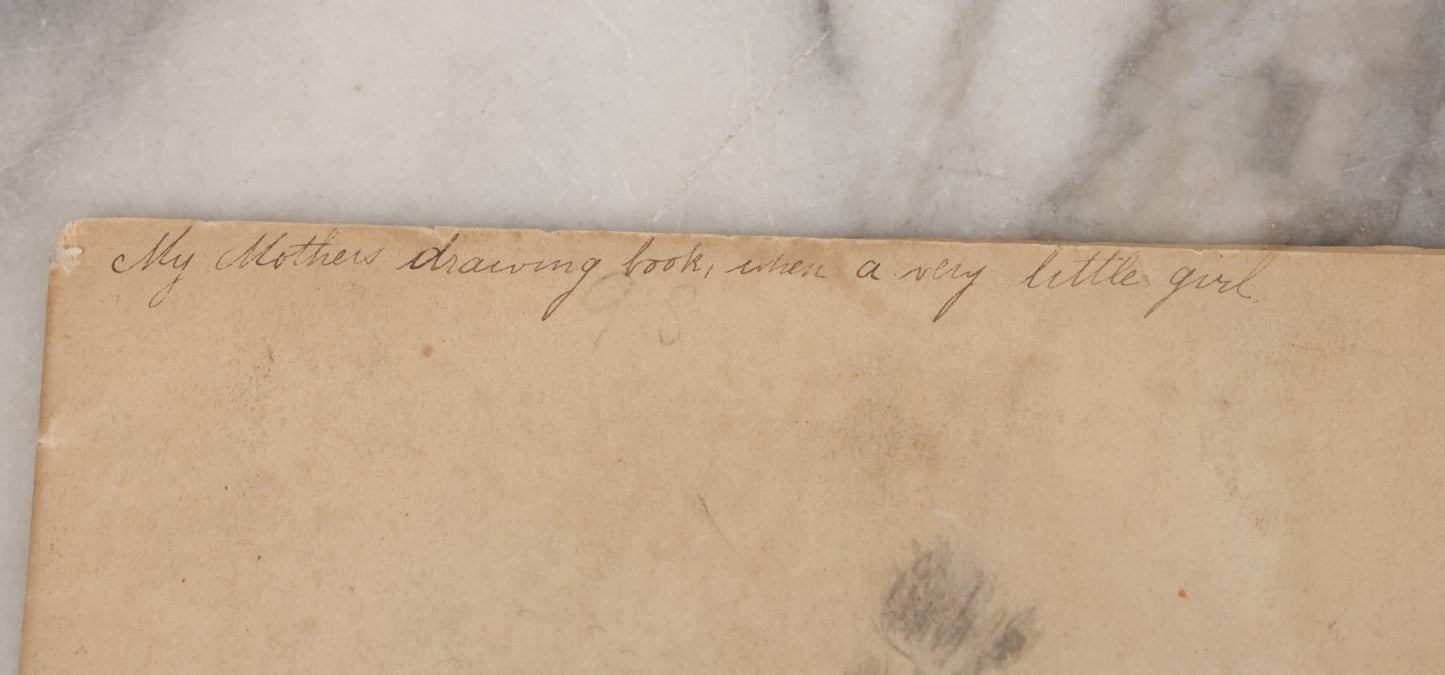 My Mothers drawing book, when a very little girl.